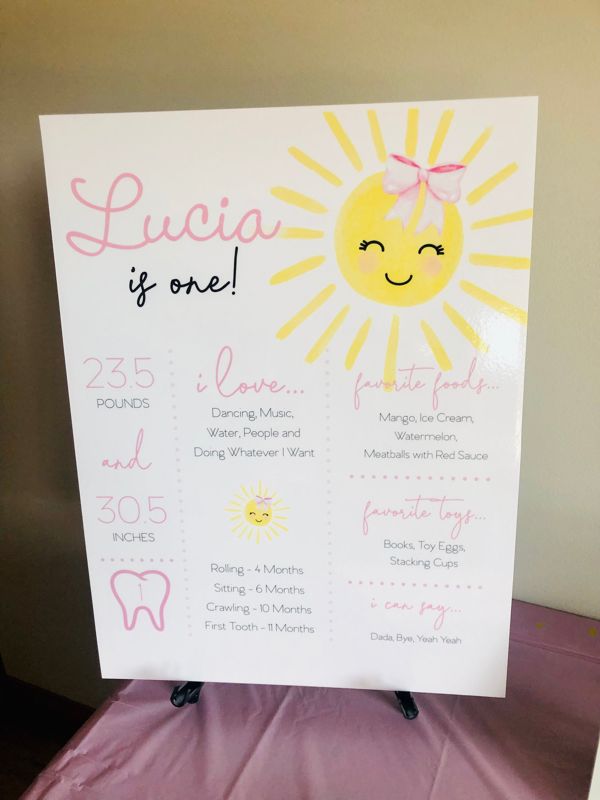 Lucia
is one!
23.5
POUNDS
and
30.5
INCHES
1
i love...
Dancing, Music,
Water, People and
Doing Whatever I Want
Rolling - 4 Months
Sitting - 6 Months
Crawling - 10 Months
First Tooth - 11 Months
favorite foods...
Mango, Ice Cream,
Watermelon,
Meatballs with Red Sauce
favorite toys...
Books, Toy Eggs,
Stacking Cups
i can say...
Dada, Bye, Yeah Yeah